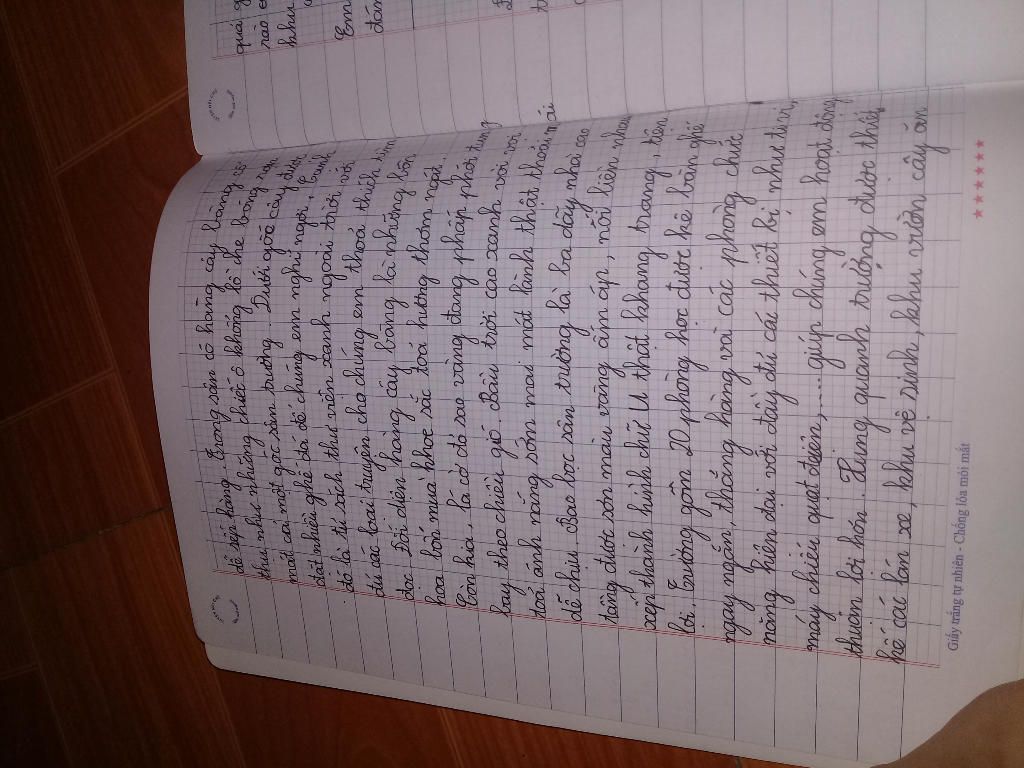 để xếp hàng. Trong sân có hàng cây bàng cổ
thụ như những chiếc ô khổng lồ che bóng râm
mát cả một góc sân trường. Dưới gốc cây được
đặt nhiều ghế đá để chúng em nghỉ ngơi, cạnh
đó là tủ sách thư viện xanh ngoài trời với
đủ các loại truyện cho chúng em thoải thích tìm
đọc. Đối diện hàng cây bàng là những bồn
hoa bốn mùa khoe sắc toả hương thơm ngát.
Còn kia, lá cờ đỏ sao vàng đang phấp phới tung
bay theo chiều gió. Bầu trời cao xanh vời vợi
toả ánh nắng sớm mai mát lành thật thoải mái
dễ chịu. Bao bọc sân trường là ba dãy nhà cao
tầng được sơn màu vàng ấm áp, nối liền nhau
xếp thành hình chữ U thật khang trang, tiện
lợi. Trường gồm 20 phòng học được kê bàn ghế
ngay ngắn, thẳng hàng và các phòng chức
năng hiện đại với đầy đủ cá thiết bị như ti vi,
máy chiếu, quạt điện,....giúp chúng em hoạt động
thuận lợi hơn. Xung quanh trường được thiết
kế các lán xe, khu vệ sinh, khu vườn cây ăn
Giấy trắng tự nhiên - Chống lóa mỏi mắt
quả
rao
khu
Em